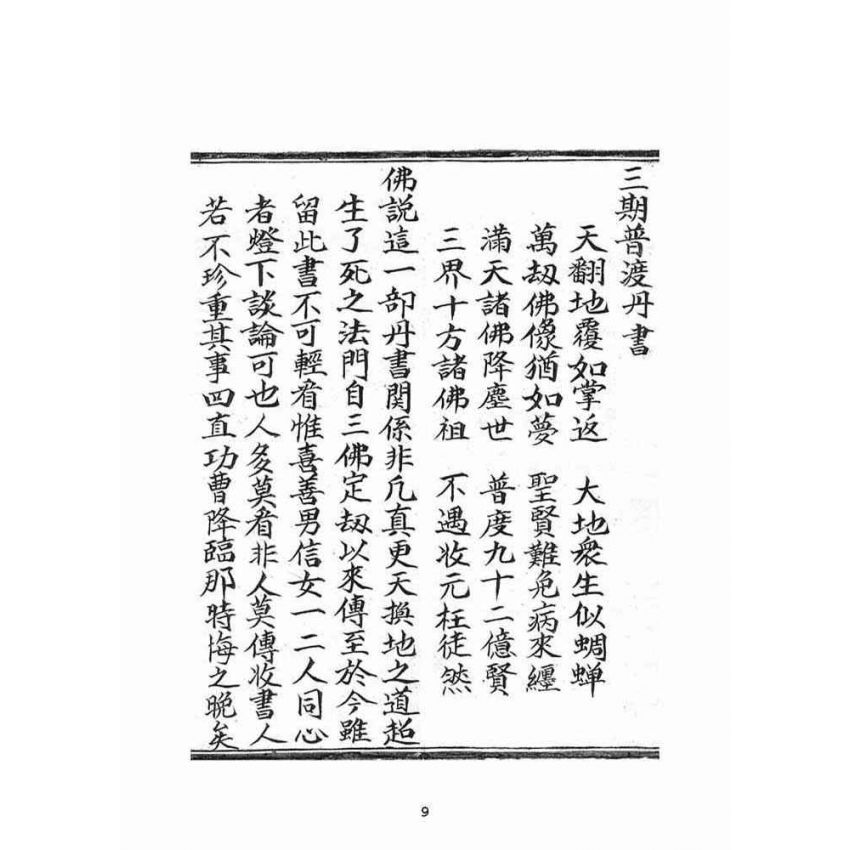 三期普渡丹書
天翻地覆如掌返　大地衆生似蜩蝉
萬刼佛像猶如夢　聖賢難免病來纒
滿天諸佛降塵世　普度九十二億賢
三界十方諸佛祖　不遇收元枉徒然
佛説這一部丹書関係非凢真更天換地之道超
生了死之法門自三佛定刼以來傳至於今雖
留此書不可輕看惟喜善男信女一二人同心
者燈下談論可也人多莫看非人莫傳收書人
若不珍重其事四直功曹降臨那時悔之晚矣
9